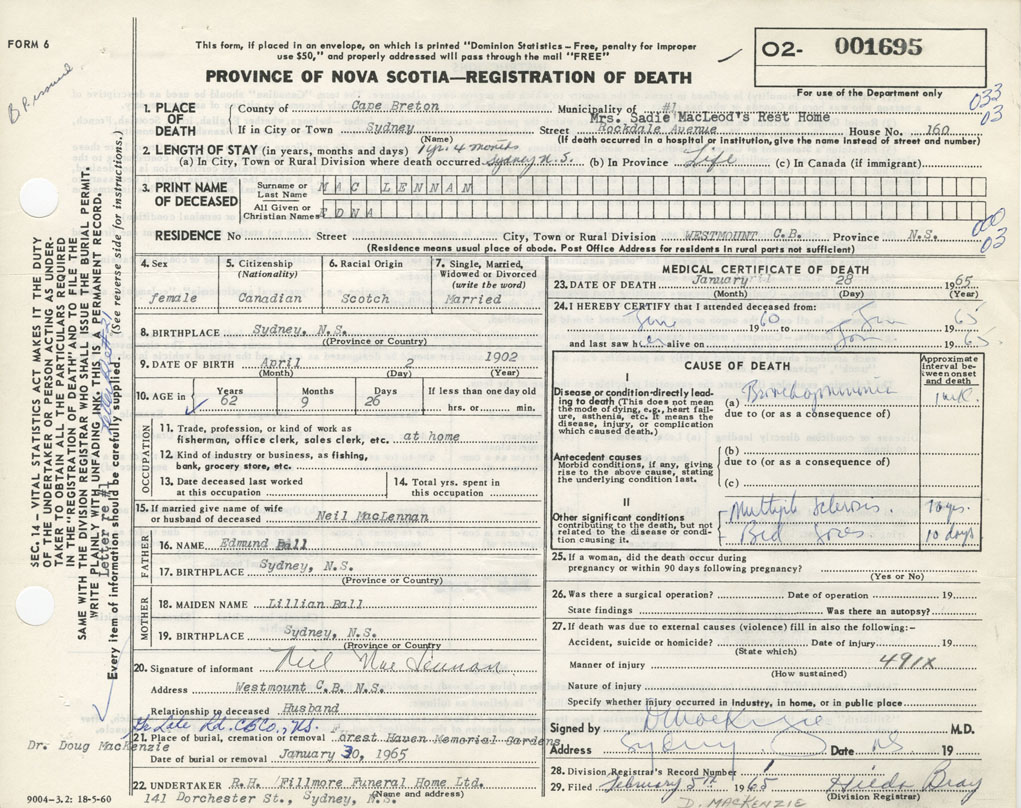 FORM 6
This form, if placed in an envelope, on which is printed "Dominion Statistics – Free, penalty for improper
use $50," and properly addressed will pass through the mail "FREE"
PROVINCE OF NOVA SCOTIA—REGISTRATION OF DEATH
02- 001695
For use of the Department only
033
03
1. PLACE OF DEATH
County of Cape Breton Municipality of #1
Mrs. Sadie MacLeod's Rest Home
If in City or Town Sydney Street Rockdale Avenue House No. 160
(Name) (If death occurred in a hospital or institution, give the name instead of street and number)
2. LENGTH OF STAY (in years, months and days) 1 yr. 4 months
(a) In City, Town or Rural Division where death occurred Sydney N.S. (b) In Province Life (c) In Canada (if immigrant)
3. PRINT NAME OF DECEASED
Surname or Last Name MAC LENNAN
All Given or Christian Names EDNA
000
03
RESIDENCE No Street City, Town or Rural Division WESTMOUNT C.B. Province N.S.
(Residence means usual place of abode. Post Office Address for residents in rural parts not sufficient)
4. Sex
female
5. Citizenship
(Nationality)
Canadian
6. Racial Origin
Scotch
7. Single, Married,
Widowed or Divorced
(write the word)
Married
8. BIRTHPLACE Sydney, N.S.
(Province or Country)
9. DATE OF BIRTH April 2 1902
(Month) (Day) (Year)
10. AGE in
Years Months Days If less than one day old
62 9 26 hrs. or min.
OCCUPATION
11. Trade, profession, or kind of work as
fisherman, office clerk, sales clerk, etc. at home
12. Kind of industry or business, as fishing,
bank, grocery store, etc.
13. Date deceased last worked
at this occupation
14. Total yrs. spent in
this occupation
15. If married give name of wife
or husband of deceased Neil MacLennan
FATHER
16. NAME Edmund Ball
17. BIRTHPLACE Sydney, N.S.
(Province or Country)
MOTHER
18. MAIDEN NAME Lillian Ball
19. BIRTHPLACE Sydney, N.S.
(Province or Country
20. Signature of informant Neil MacLennan
Address Westmount C.B. N.S.
Relationship to deceased Husband
Gr Lake Rd. CB Co., NS
21. Place of burial, cremation or removal Crest Haven Memorial Gardens
Dr. Doug MacKenzie
Date of burial or removal January 30, 1965
22. UNDERTAKER R.H. Fillmore Funeral Home Ltd.
(Name and address)
141 Dorchester St., Sydney, N.S.
9004-3.2: 18-5-60
MEDICAL CERTIFICATE OF DEATH
23. DATE OF DEATH January 28 1965
(Month) (Day) (Year)
24. I HEREBY CERTIFY that I attended deceased from:
June 1960 to Jan 1965
and last saw her alive on Jan 1965.
CAUSE OF DEATH
Approximate interval between onset and death
I
Disease or condition directly leading to death (This does not mean the mode of dying, e.g., heart failure, asthenia, etc. It means the disease, injury, or complication which caused death.)
(a) Bronchopneumonia 1 wk
due to (or as a consequence of)
Antecedent causes
Morbid conditions, if any, giving rise to the above cause, stating the underlying condition last.
(b)
due to (or as a consequence of)
(c)
II
Other significant conditions contributing to the death, but not related to the disease or condition causing it.
Multiple Sclerosis. 10 yrs.
Bed Sores 10 days
25. If a woman, did the death occur during
pregnancy or within 90 days following pregnancy?
(Yes or No)
26. Was there a surgical operation? Date of operation 19
State findings Was there an autopsy?
27. If death was due to external causes (violence) fill in also the following:–
Accident, suicide or homicide? Date of injury 19
(State which)
Manner of injury 491X
(How sustained)
Nature of injury
Specify whether injury occurred in Industry, in home, or in public place
Signed by D MacKenzie M.D.
Address Sydney NS Date 19
28. Division Registrar's Record Number
29. Filed February 5th 1965 Hilda Bray
(Division Registrar)
D. MACKENZIE
SEC. 14 – VITAL STATISTICS ACT MAKES IT THE DUTY
OF THE UNDERTAKER OR PERSON ACTING AS UNDER-
TAKER TO OBTAIN ALL THE PARTICULARS REQUIRED
IN THE "REGISTRATION OF DEATH" AND TO FILE THE
SAME WITH THE DIVISION REGISTRAR WHO SHALL ISSUE THE BURIAL PERMIT.
WRITE PLAINLY WITH UNFADING INK, THIS IS A PERMANENT RECORD.
Letter re #1
Every item of information should be carefully supplied. (See reverse side for instructions.)